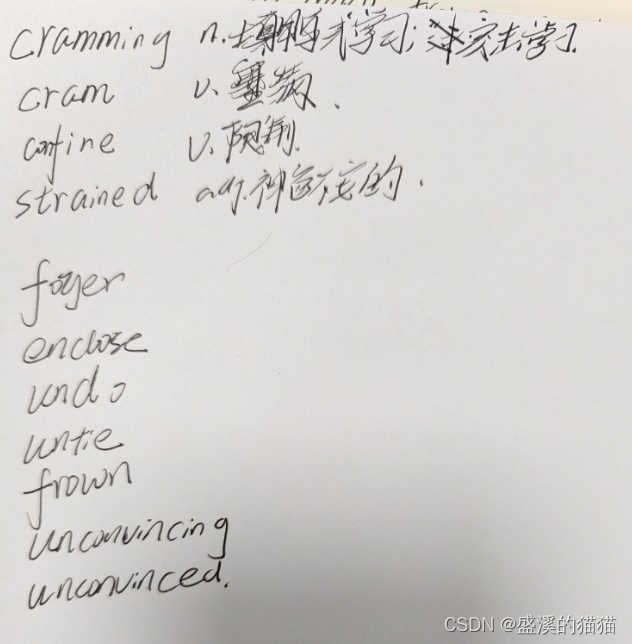 cramming n.填鸭式学习;突击学习.
cram v.塞满.
confine v.限制.
strained adj.神的.
foyer
enclose
undo
untie
frown
unconvincing
unconvinced.
CSDN @盛溪的猫猫